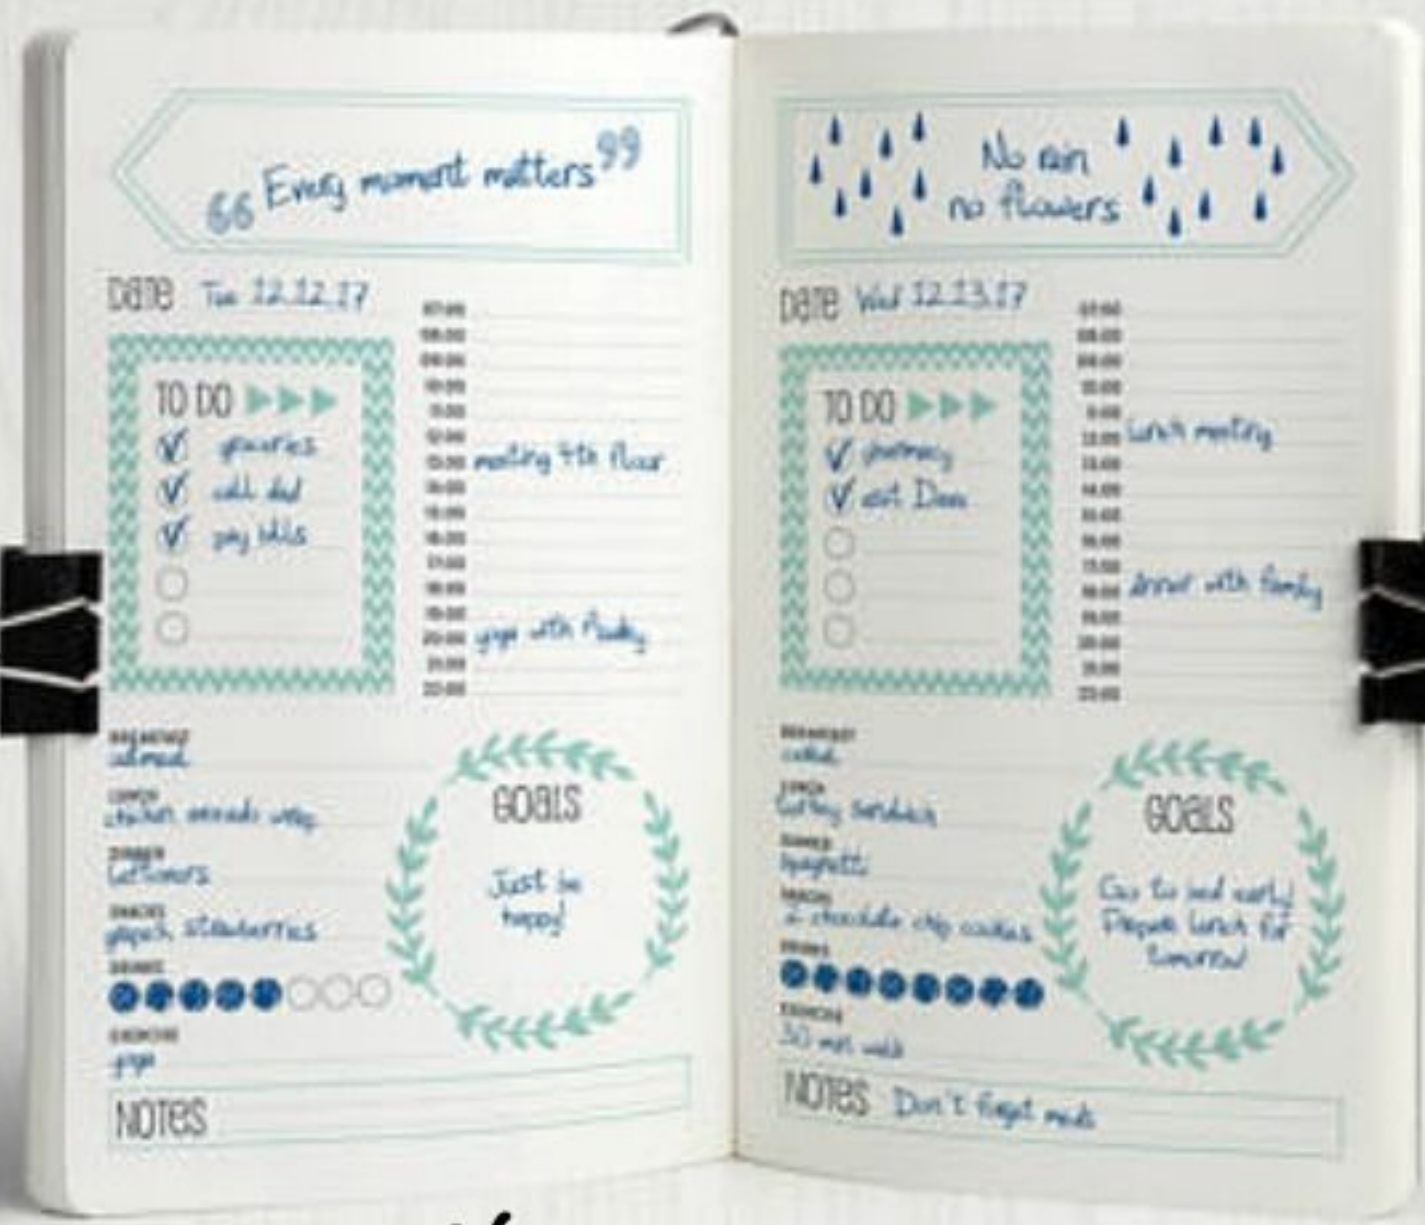 66 Every moment matters 99
DATE Tue 12.12.17
07:00
08:00
09:00
10:00
11:00
12:00
13:00 meeting 4th floor
14:00
15:00
16:00
17:00
18:00
19:00
20:00 yoga with
21:00
22:00
TO DO
groceries
call dad
pay bills
BREAKFAST
oatmeal
LUNCH
chicken avocado wrap
DINNER
Leftovers
SNACKS
strawberries
DRINKS
EXERCISE
yoga
GOALS
Just be
happy!
NOTES
No rain
no flowers
DATE Wed 12.13.17
07:00
08:00
09:00
10:00
11:00
12:00 Lunch meeting
13:00
14:00
15:00
16:00
17:00
18:00 dinner with family
19:00
20:00
21:00
22:00
TO DO
pharmacy
BREAKFAST
LUNCH
turkey sandwich
DINNER
spaghetti
SNACKS
2 chocolate chip cookies
DRINKS
EXERCISE
30 min walk
GOALS
Go to bed early!
Prepare lunch for
tomorrow!
NOTES Don't forget meds